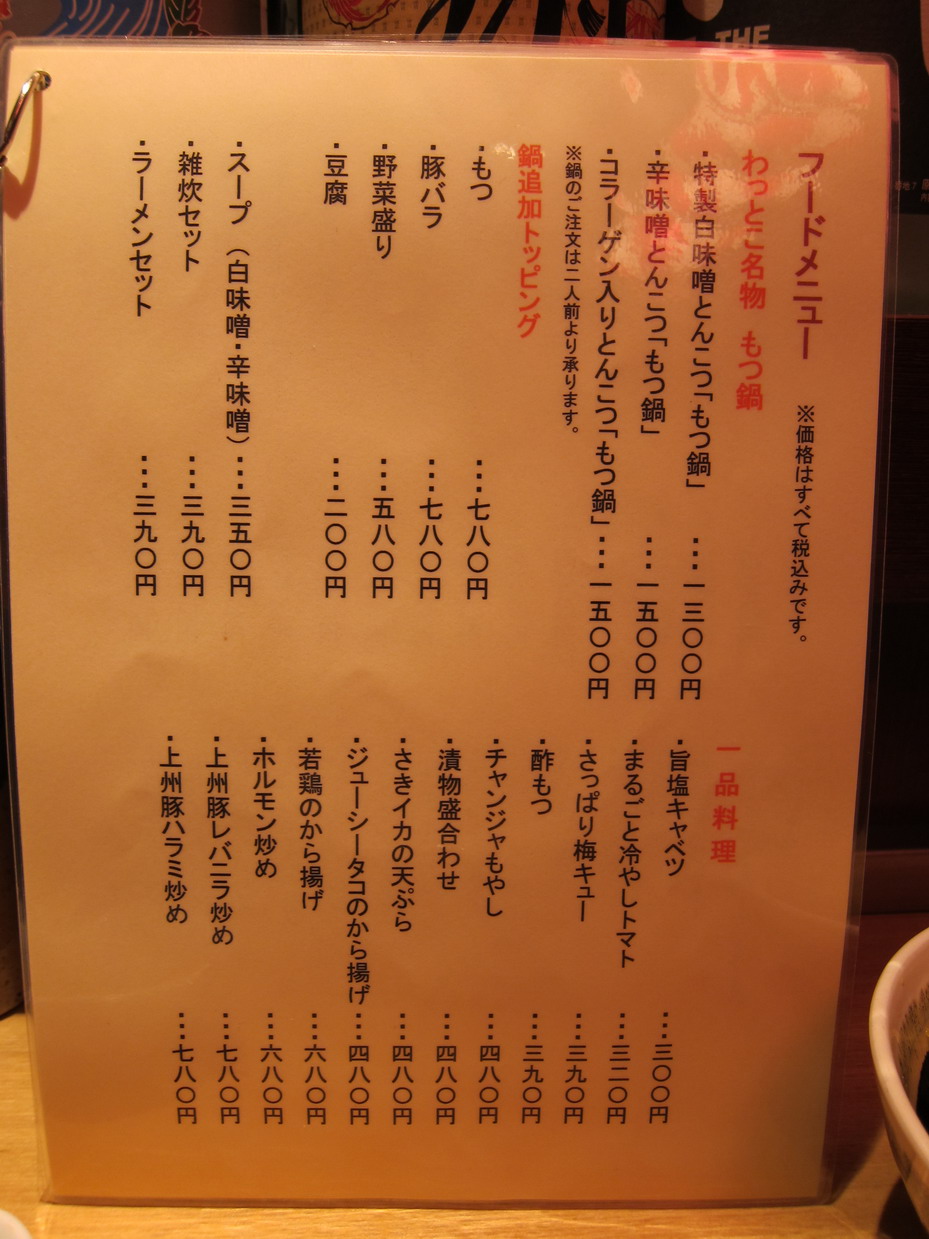 フードメニュー ※価格はすべて税込みです。
わっとこ名物 もつ鍋
・特製白味噌とんこつ「もつ鍋」 …一三〇〇円
・辛味噌とんこつ「もつ鍋」 …一五〇〇円
・コラーゲン入りとんこつ「もつ鍋」…一五〇〇円
※鍋のご注文は二人前より承ります。
鍋追加トッピング
・もつ …七八〇円
・豚バラ …七八〇円
・野菜盛り …五八〇円
・豆腐 …二〇〇円
・スープ (白味噌・辛味噌)…三五〇円
・雑炊セット …三九〇円
・ラーメンセット …三九〇円
一品料理
・旨塩キャベツ …三〇〇円
・まるごと冷やしトマト …三二〇円
・さっぱり梅キュー …三九〇円
・酢もつ …三九〇円
・チャンジャもやし …四八〇円
・漬物盛合わせ …四八〇円
・さきイカの天ぷら …四八〇円
・ジューシータコのから揚げ…四八〇円
・若鶏のから揚げ …六八〇円
・ホルモン炒め …六八〇円
・上州豚レバニラ炒め …七八〇円
・上州豚ハラミ炒め …七八〇円
THE